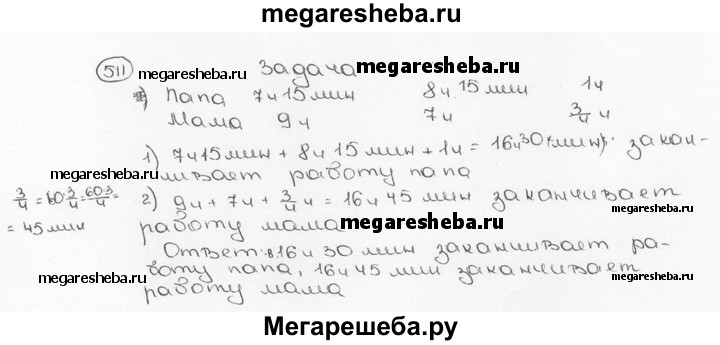 megaresheba.ru
511 Задача
megaresheba.ru megaresheba.ru
Папа 7ч 15 мин 8ч 15 мин 1ч
Мама 9ч 7ч 3/4 ч
1) 7ч 15 мин + 8ч 15 мин + 1ч = 16ч 30 (мин) закан-
чивает работу папа
3/4 = 60·3/4 = 60·3/4 =
= 45 мин
2) 9ч + 7ч + 3/4 ч = 16ч 45 мин заканчивает
работу мама
megaresheba.ru megaresheba.ru
megaresheba.ru
Ответ: в 16ч 30 мин заканчивает ра-
боту папа, 16ч 45 мин заканчивает
работу мама
megaresheba.ru megaresheba.ru
Мегарешеба.ру